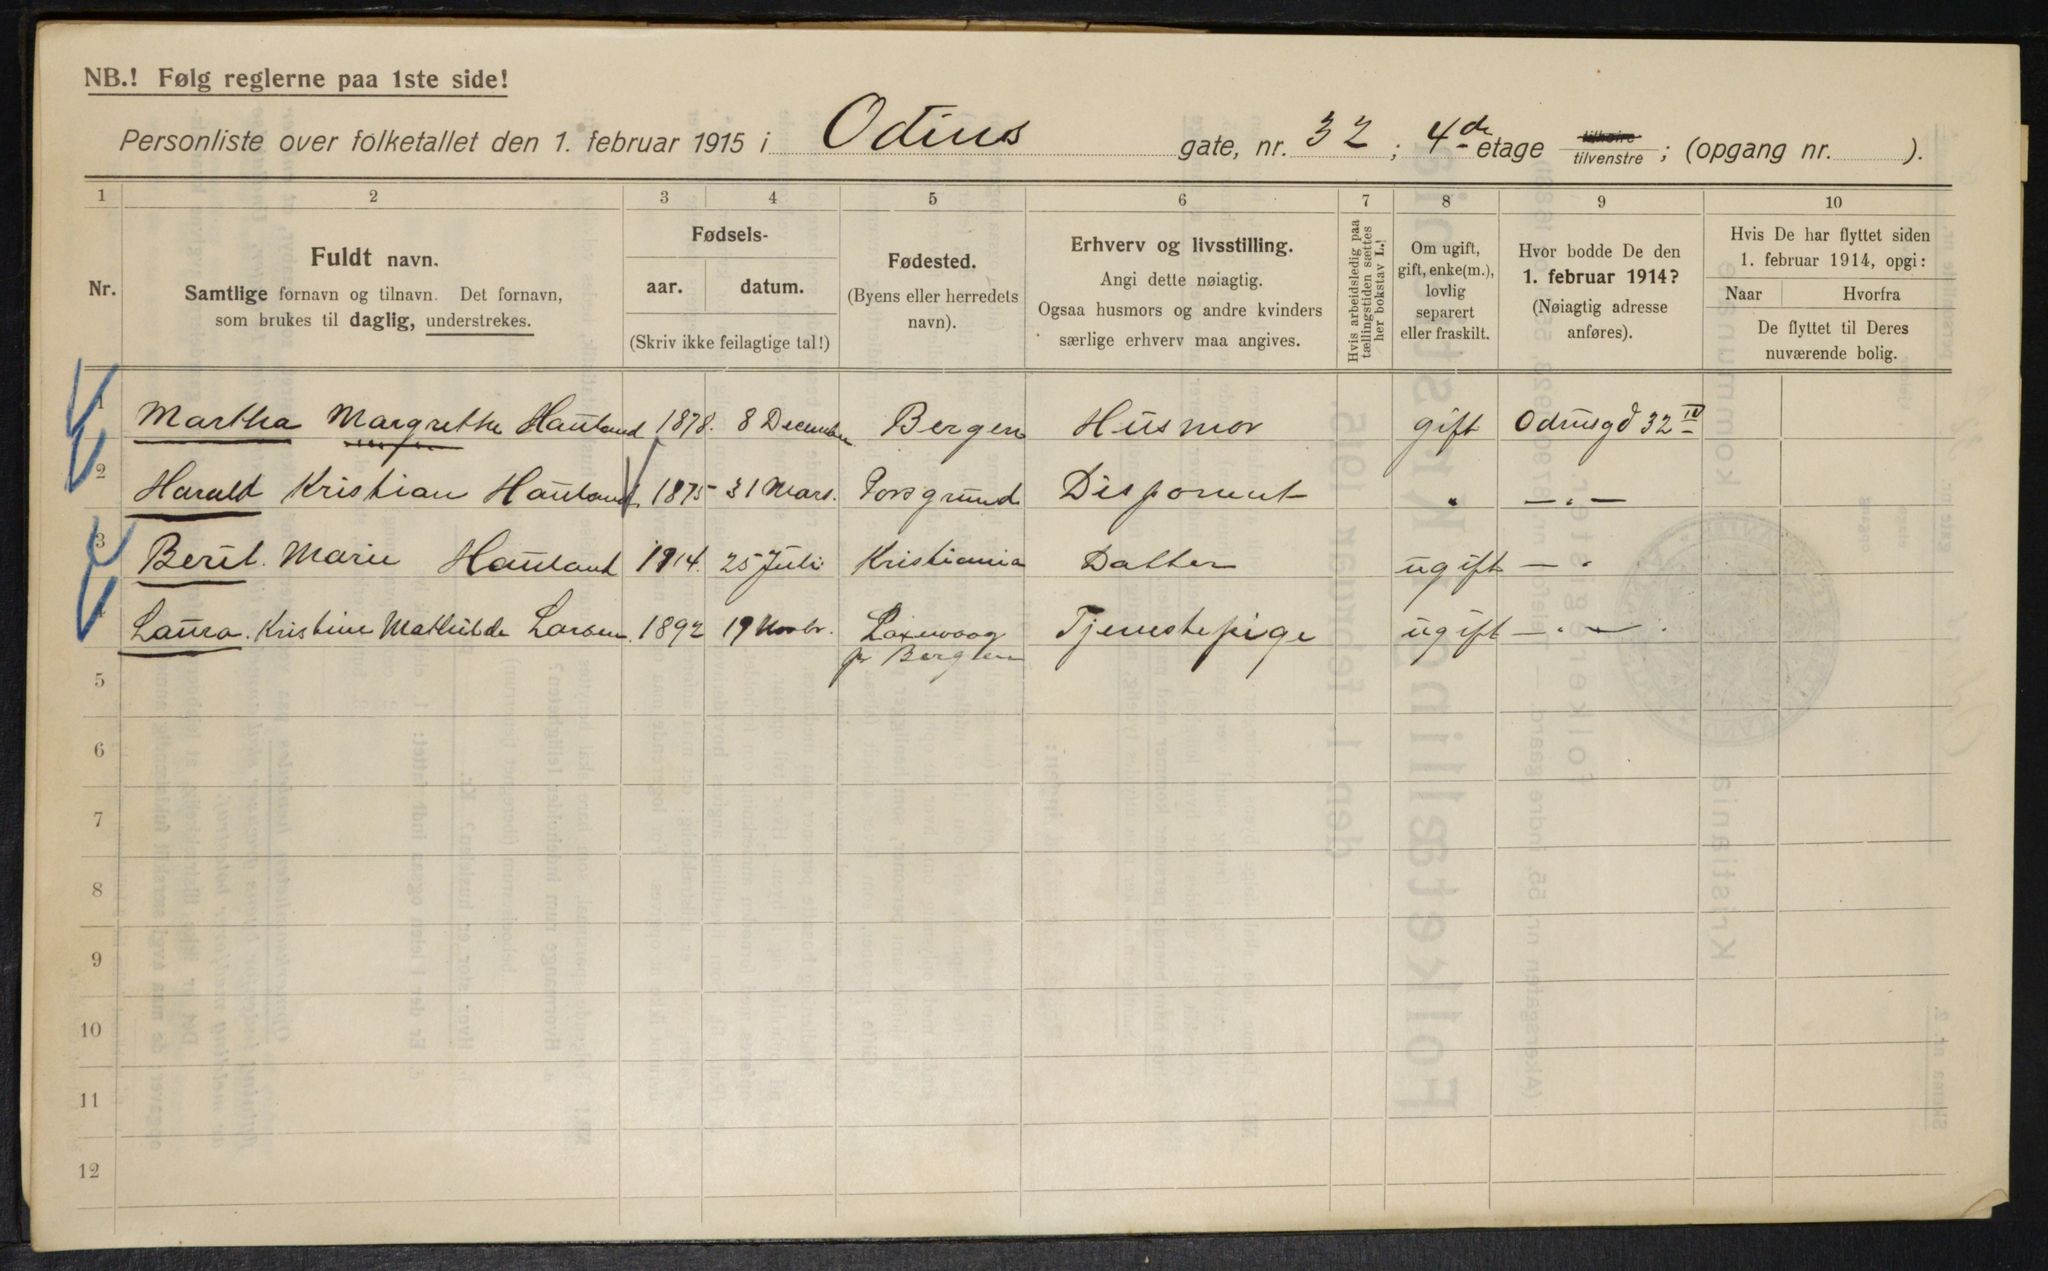 NB.! Følg reglerne paa 1ste side!
Personliste over folketallet den 1. februar 1915 i Odins gate, nr. 32 ; 4de etage tilhøire tilvenstre ; (opgang nr. ).
1 2 3 4 5 6 7 8 9 10
Nr.
Fuldt navn.
Samtlige fornavn og tilnavn. Det fornavn,
som brukes til daglig, understrekes.
Fødsels-
aar. datum.
(Skriv ikke feilagtige tal!)
Fødested.
(Byens eller herredets
navn).
Erhverv og livsstilling.
Angi dette nøiagtig.
Ogsaa husmors og andre kvinders
særlige erhverv maa angives.
Hvis arbeidsledig paa
tællingstiden sættes
her bokstav L.!
Om ugift,
gift, enke(m.),
lovlig
separert
eller fraskilt.
Hvor bodde De den
1. februar 1914?
(Nøiagtig adresse
anføres).
Hvis De har flyttet siden
1. februar 1914, opgi:
Naar Hvorfra
De flyttet til Deres
nuværende bolig.
1 Martha Margrethe Hauland 1878. 8 December Bergen Husmor gift Odinsgd 32 IV
2 Harald Kristian Hauland 1875 31 Mars. Porsgrund Disponent " — " —
3 Berit. Marie Hauland 1914. 25 Juli Kristiania Datter ugift — "
4 Laura. Kristine Mathilde Larsen 1892 19 Novbr. Laxevaag Tjenestepige ugift — " —
pr Bergen
5
6
7
8
9
10
11
12